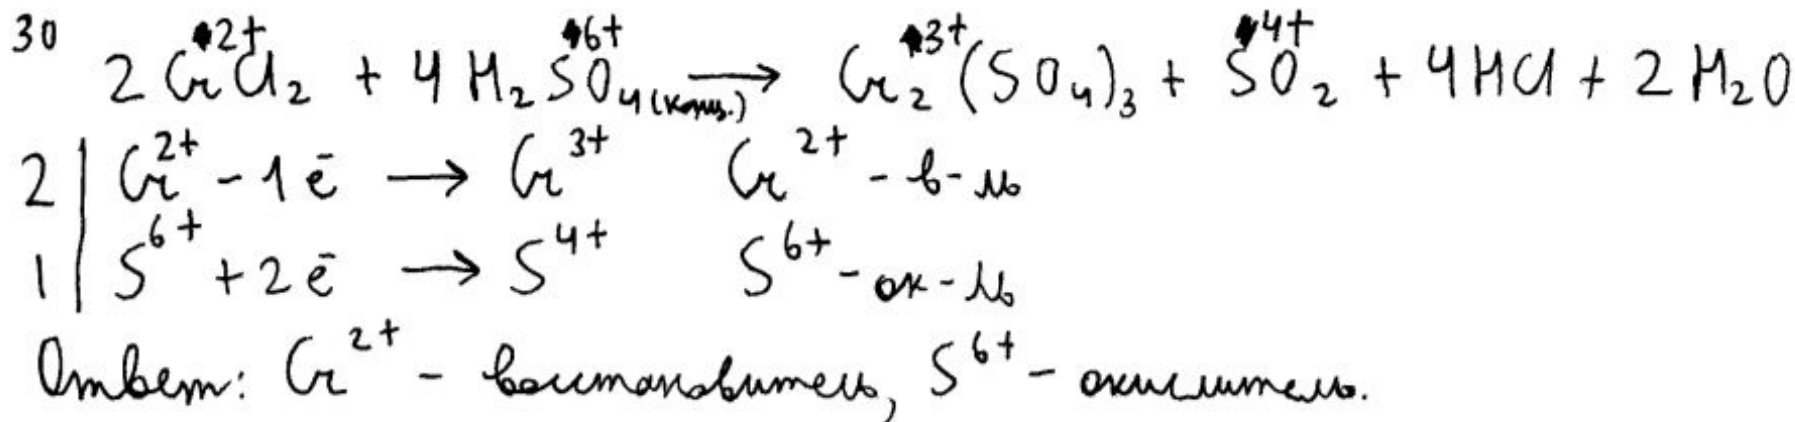 30
2 Cr²⁺Cl₂ + 4 H₂S⁶⁺O₄(конц.) → Cr₂³⁺(SO₄)₃ + S⁴⁺O₂ + 4HCl + 2 H₂O
2 | Cr²⁺ - 1 ē → Cr³⁺ Cr²⁺ - в-ль
1 | S⁶⁺ + 2 ē → S⁴⁺ S⁶⁺ - ок-ль
Ответ: Cr²⁺ - восстановитель, S⁶⁺ - окислитель.